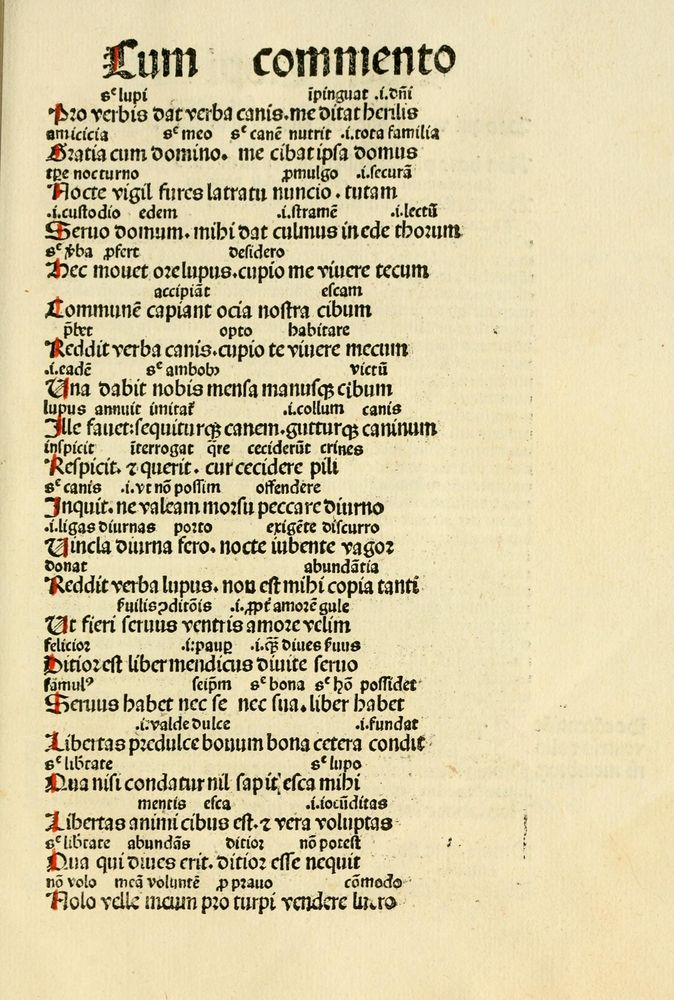 Cum commento
sᶜ lupi īpinguat .i.dñi
Pro verbis dat verba canis.me ditat herilis
amicicia sᶜ meo sᶜ canē nutrit .i.tota familia
Gratia cum domino. me cibat ipsa domus
tp̄e nocturno ꝓmulgo .i.securā
Nocte vigil fures latratu nuncio. tutam
.i.custodio edem .i.stramē .i.lectū
Seruo domum. mihi dat culmus in ede thorum
sᶜ v̄ba ꝓfert desidero
Hec mouet ore lupus.cupio me viuere tecum
accipiāt escam
Communē capiant ocia nostra cibum
p̄bet opto habitare
Reddit verba canis.cupio te viuere mecum
.i.eadē sᶜ ambobꝰ victū
Una dabit nobis mensa manusqꝫ cibum
lupus annuit imitat᷑ .i.collum canis
Ille fauet:sequiturqꝫ canem.gutturqꝫ caninum
inspicit īterrogat q̄re ceciderūt crines
Respicit. ⁊ querit. cur cecidere pili
sᶜ canis .i.vt nō possim offendere
Inquit. ne valeam morsu peccare diurno
.i.ligas diurnas porto exigēte discurro
Uincla diurna fero. nocte iubente vagor
donat abundātia
Reddit verba lupus. non est mihi copia tanti
ẜuilis ꝯditōis .i.ꝓpt᷑ amorē gule
Ut fieri seruus ventris amore velim
felicior .i:paup̲ .i.qꝫ̄ diues ẜuus
Ditior est liber mendicus diuite seruo
famulꝰ seip̄m sᶜ bona sᶜ hō possidet
Seruus habet nec se nec sua.liber habet
.i:valde dulce .i.fundat
Libertas predulce bonum bona cetera condit
sᶜ lib̄tate sᶜ lupo
Qua nisi condatur nil sapit esca mihi
mentis esca .i.iocūditas
Libertas animi cibus est.⁊ vera voluptas
sᶜ lib̄tate abundās ditior nō potest
Qua qui diues erit. ditior esse nequit
nō volo meā voluntē ꝓ prauo cōmodo
Nolo velle meum pro turpi vendere lucro